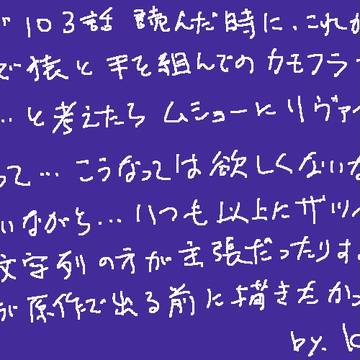 が103話 読んだ時に、これが
で猿と手を組んでのカモフラ
…と考えたらムショーにリヴァイ
って…こうなっては欲しくないな
いながら…いつも以上にザツ
文字列の方が主張だったりす
が原作で出る前に描きたかっ
by.